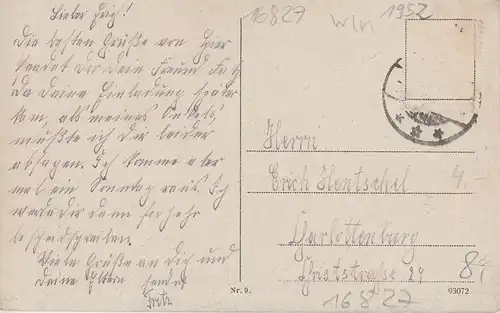 16827
1952
Lieber Erich!
Die besten Grüße von hier
sendet Dir Dein Freund
Da Deine Einladung später
kam, als meines Onkels,
mußte ich Dir leider
absagen. Ich komme aber
mal ein Sonntag raus. Ich
werde Dir dann vorher
bescheid schreiben.
Viele Grüße an Dich und
Deine Eltern sendet
Fritz
Herrn
Erich Hentschel
4.-
Charlottenburg
29
84
Nr. 9.
16827
93072